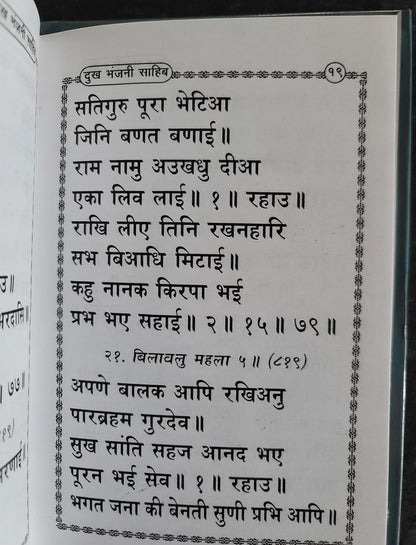 दुख भंजनी साहिब
१९
सतिगुरु पूरा भेटिआ
जिनि बणत बणाई॥
राम नामु अउखधु दीआ
एका लिव लाई॥ १॥ रहाउ॥
राखि लीए तिनि रखनहारि
सभ बिआधि मिटाई॥
कहु नानक किरपा भई
प्रभ भए सहाई॥ २॥ १५॥ ७९॥
२१. बिलावलु महला ५॥ (८१९)
अपणे बालक आपि रखिअनु
पारब्रहम गुरदेव॥
सुख सांति सहज आनद भए
पूरन भई सेव॥ १॥ रहाउ॥
भगत जना की बेनती सुणी प्रभि आपि॥